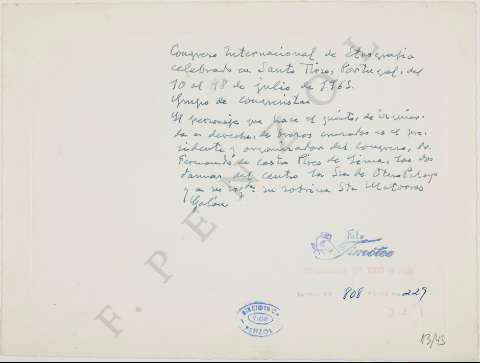 Congreso Internacional de Etnografía
celebrado en Santo Tirso, Portugal, del
10 al 18 de julio de 1963.
Grupo de congresistas
El personaje que hace el quinto, de izquier-
da a derecha, de brazos cruzados es el pre-
sidente y organizador del congreso, Dr.
Fernando de Castro Pires de Lima, las dos
damas del centro la Sra de Otero Pedrayo
y a su su sobrina Sta
Galán
F. PENZOL
Foto
Timóteo
808 229
BIBLIOTECA
VIGO
PENZOL
13/43